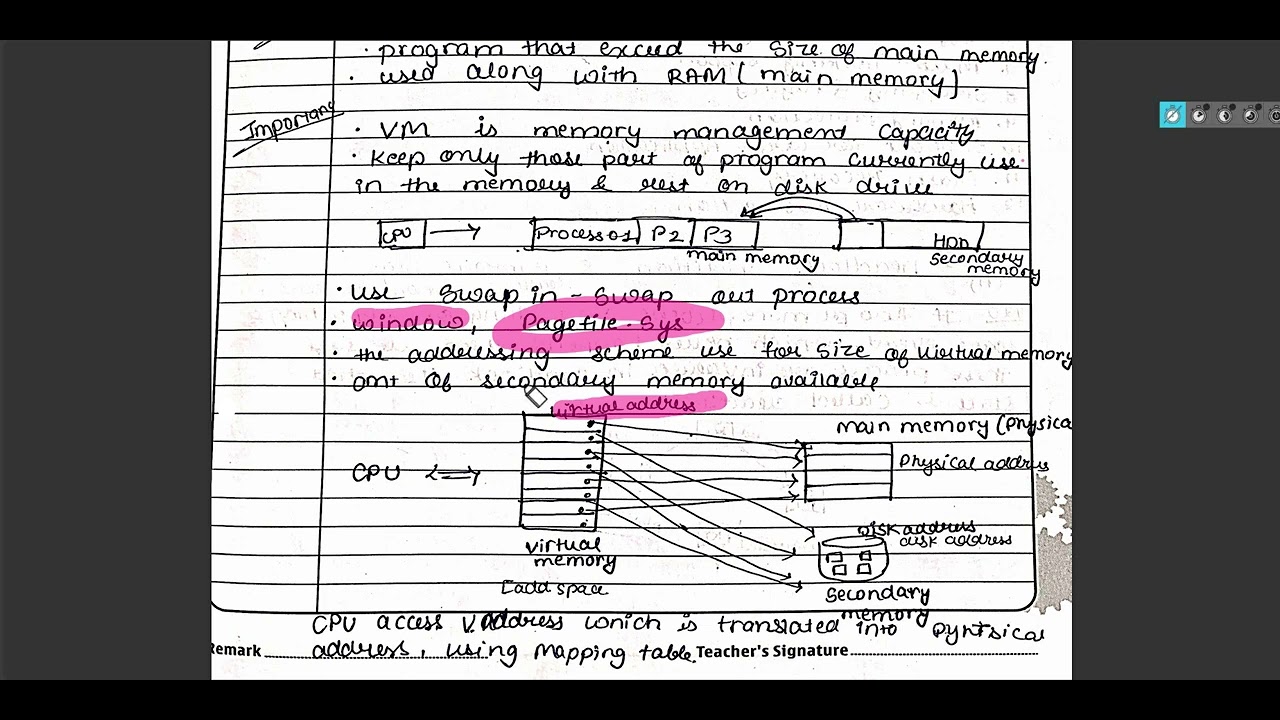 • program that exceed the size of main memory.
• used along with RAM (main memory).
Important
• VM is memory management capacity
• Keep only those part of program currently use
in the memory & rest on disk drive
CPU Process01 P2 P3 HDD
main memory secondary memory
• Use Swap in - Swap out process
• window, Pagefile.Sys
• the addressing scheme use for size of virtual memory
• omt of secondary memory available
virtual address
main memory (physica
Physical address
CPU
disk address
disk address
virtual memory
[add space
Secondary memory
CPU access V.Address which is translated into pyhtsical
address, using mapping table.
Remark Teacher's Signature